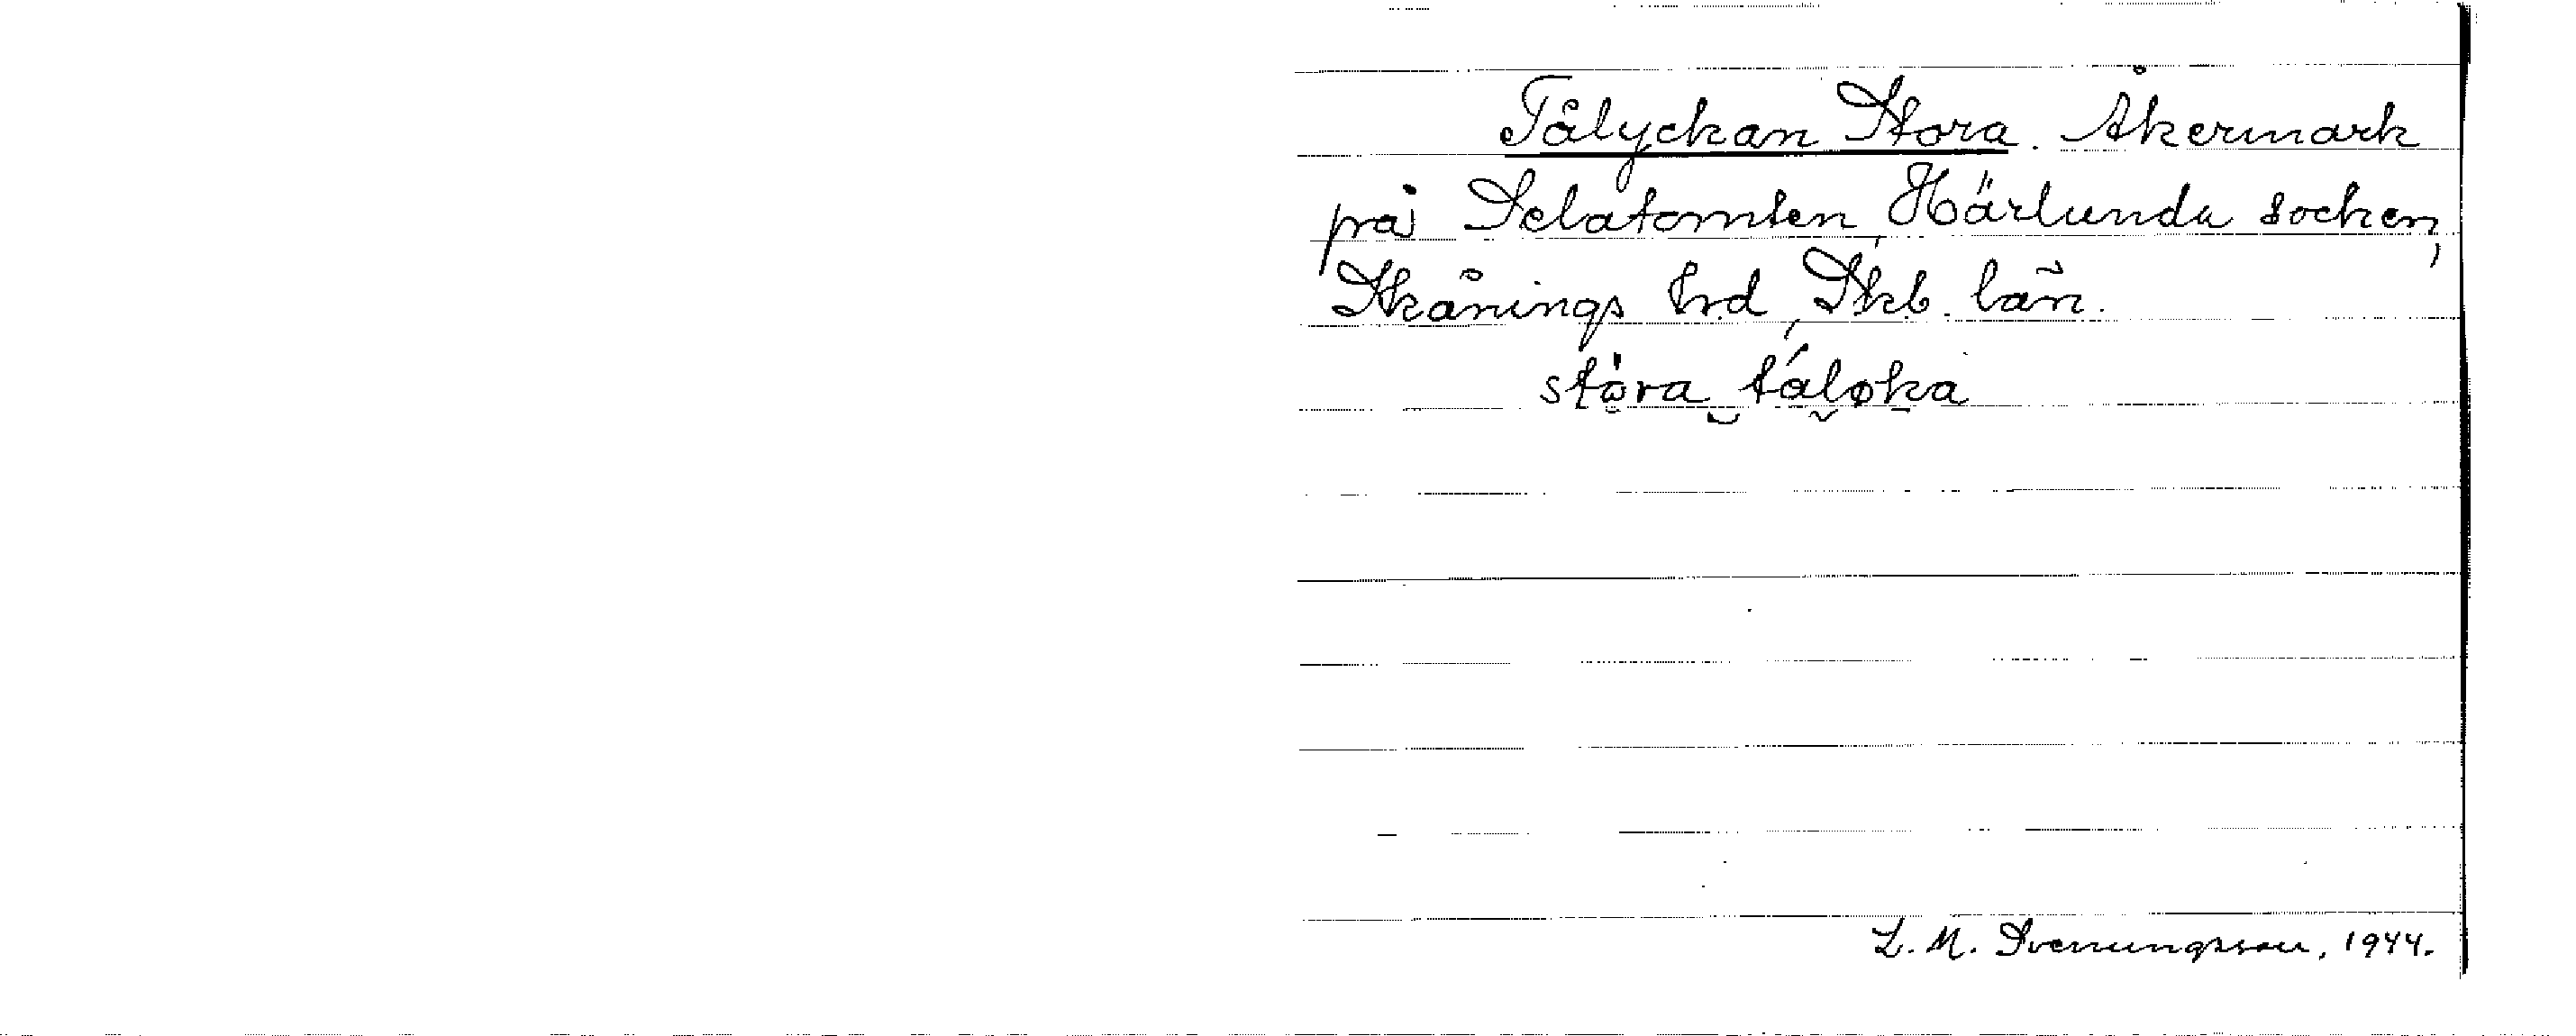 Tålyckan Stora. Åkermark
på Selatomten, Härlunda socken,
Skånings hrd, Skb. län.
störa táløka
L. M. Svenungsson, 1944.